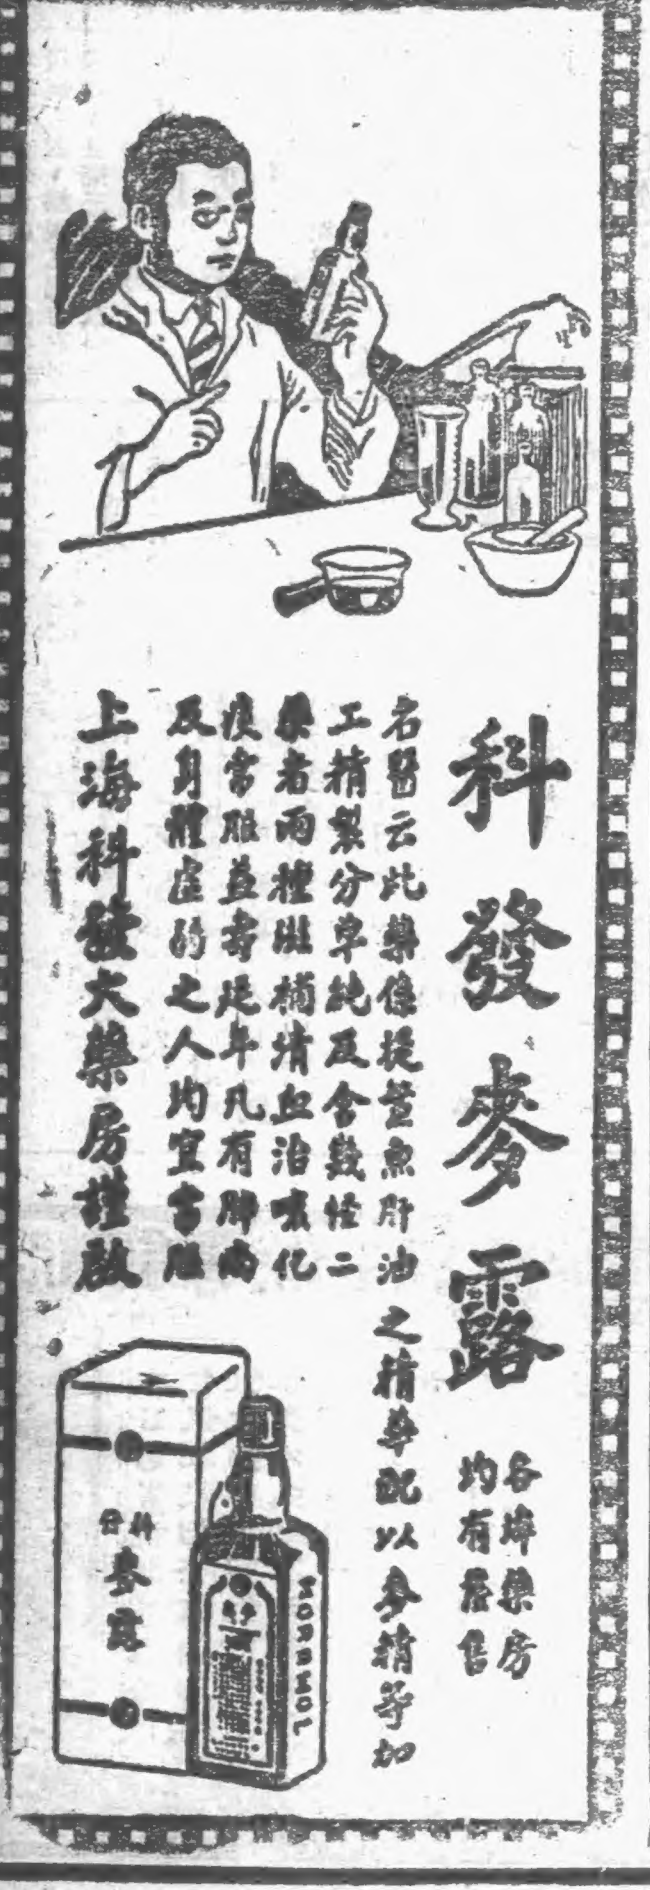 科發麥露
各埠藥房
均有發售
名醫云此藥係提鰵魚肝油之精華配以麥精等加
工精製分單純及含幾怪二
藥者兩種班補清血治嗽化
痰常服益壽延年凡有脾肉
及身體虛弱之人均宜常服
上海科發大藥房謹啟
科發
麥露
MORRHOL